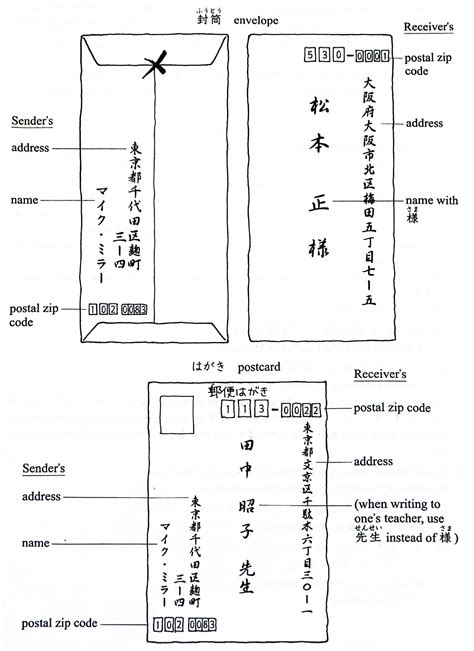 ふうとう
封筒 envelope
Receiver's
530-0001
postal zip code
大阪府大阪市北区梅田五丁目七ー五
address
松本 正 様
name with
さま
様
Sender's
address
東京都千代田区麹町
三ー四
name
マイク・ミラー
postal zip code
102 0083
はがき postcard
Receiver's
郵便はがき
113-0022
postal zip code
東京都文京区千駄木六丁目三〇ー一
address
田中 昭子 先生
(when writing to
one's teacher, use
せんせい さま
先生 instead of 様)
Sender's
address
東京都千代田区麹町
三ー四
name
マイク・ミラー
postal zip code
102 0083